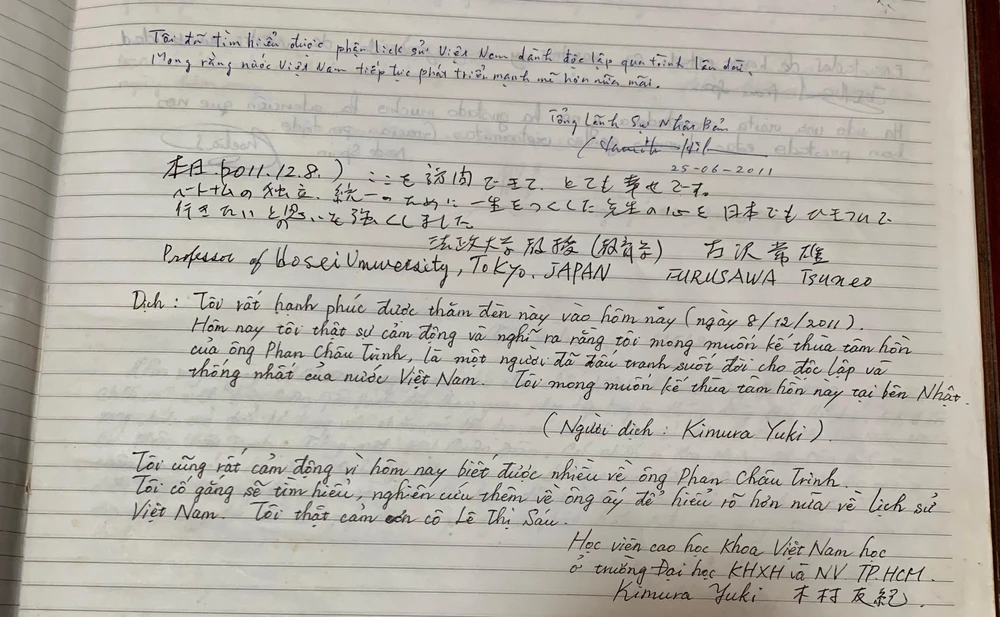 Tôi đã tìm hiểu được phần lịck sử Việt Nam dành độc lập quá trình lâu dài.
Mong rằng nước Việt Nam tiếp tục phát triển mạnh mẽ hơn nữa mãi.
Tổng Lãnh Sự Nhật Bản
25-06-2011
本日(2011.12.8.) ここを訪問できて、とても幸せです。
ベトナムの独立、統一のために一生をつくした先生の心を日本でもひきついで
行きたいと思いを強くしました
法政大学教授(教育学) 古沢常雄
Professor of Hosei University, TOKYO. JAPAN FURUSAWA Tsuneo
Dịch: Tôi rất hạnh phúc được thăm đền này vào hôm nay (ngày 8/12/2011).
Hôm nay tôi thật sự cảm động và nghĩ ra rằng tôi mong muốn kế thừa tâm hồn
của ông Phan Châu Trinh, là một người đã đấu tranh suốt đời cho độc lập và
thống nhất của nước Việt Nam. Tôi mong muốn kế thừa tâm hồn này tại bên Nhật.
(Người dịch: Kimura Yuki).
Tôi cũng rất cảm động vì hôm nay biết được nhiều về ông Phan Châu Trinh.
Tôi cố gắng sẽ tìm hiểu, nghiên cứu thêm về ông ấy để hiểu rõ hơn nữa về lịch sử
Việt Nam. Tôi thật cảm ơn cô Lê Thị Sáu.
Học viên cao học Khoa Việt Nam học
ở trường Đại học KHXH và NV TP.HCM.
Kimura Yuki 木村友紀.